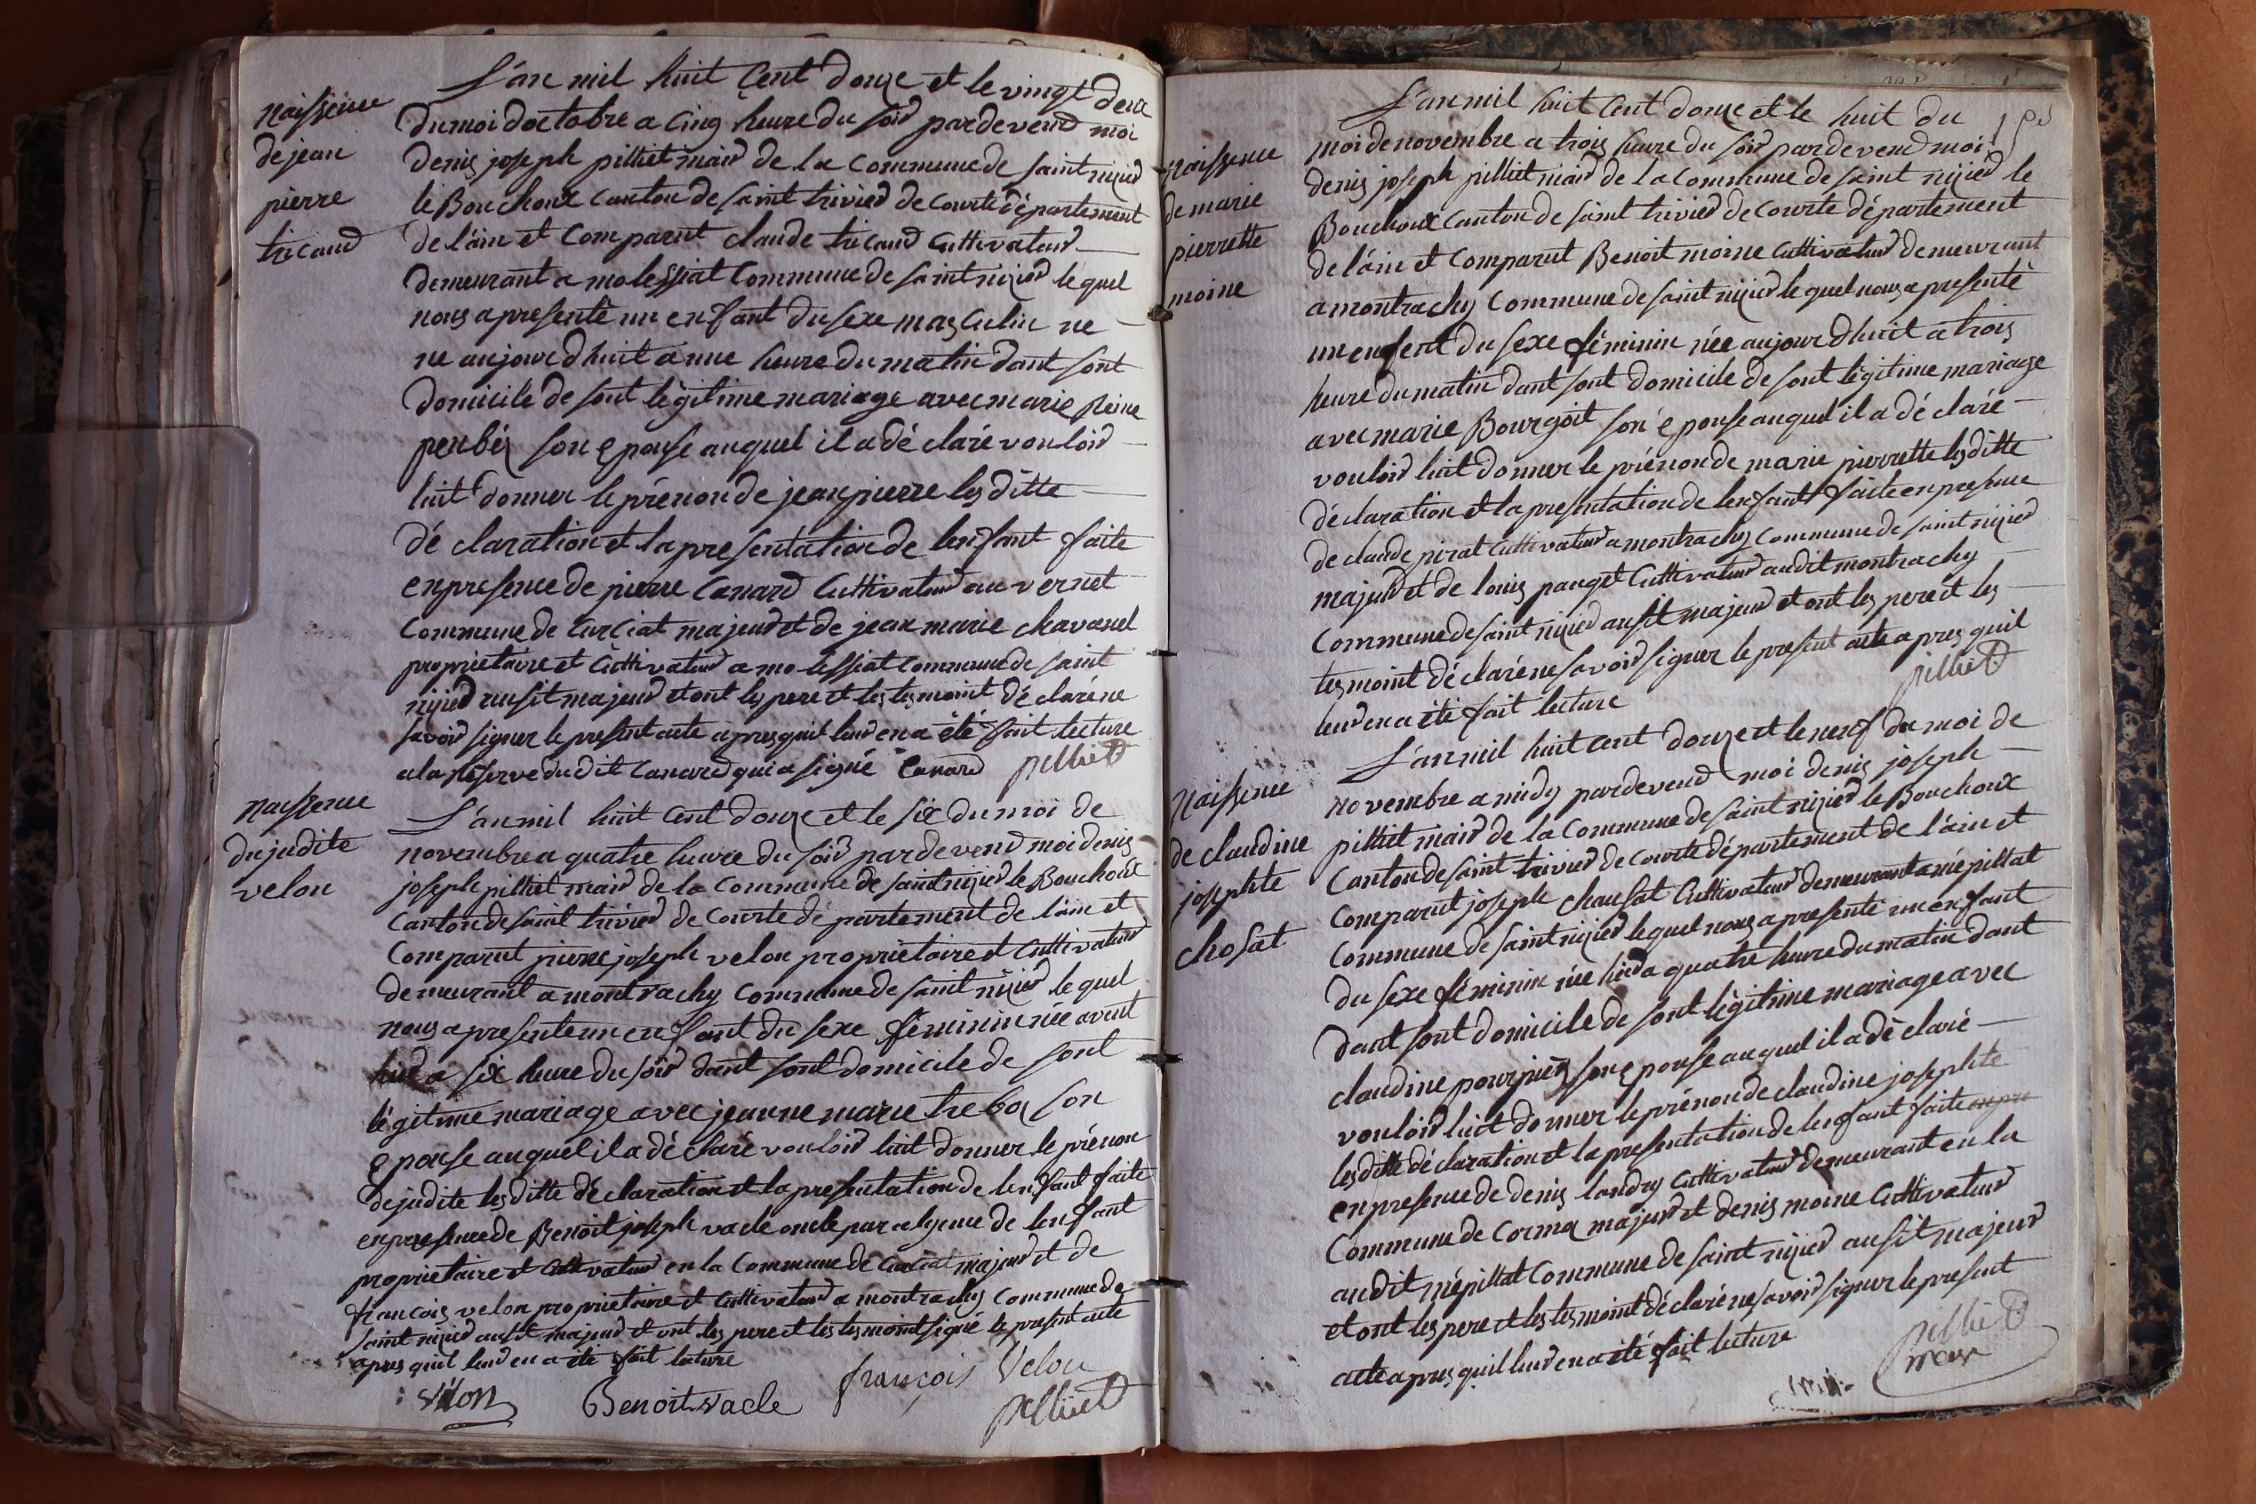 naissence
de jean
pierre
tricaud
L'an mil huit cent douze et le vingt deux
du moi doctobre a cinq heure du soir pardevend moi
denis joseph pilliet mair de la commune de saint nizied
le Bouchoux canton de saint trivied de courte département
de l'ain et comparut claude tricaud cultivateur
demeurant a molessiat commune de saint nizied lequel
nous a presentè un enfant du sexe masculin ne
ne aujourdhuit a une heure du matin dant sont
domicile de sont lègitime mariage avec marie Reine
son epouse auquel il a dé claré vouloir
luit donner le prénon de jean pierre lesditte
dé claration et la presentation de lenfant faite
en presence de pierre Canard cultivateur au vernet
commune de curciat majeur et de jean marie chavanel
proprietaire et cultivateur a molessiat commune de saint
nizied ausit majeur et ont les pere et les tesmoint dé claré ne
savoir signer le present acte apres quil leur en a été fait lecture
a la reserve du dit Canard qui a signé Canard pilliet
naissence
du judite
velon
L'an mil huit cent douze et le six du moi de
novembre a quatre heure du soir pardevend moi denis
joseph pilliet mair de la commune de saint nizied le Bouchoux
canton de saint trivied de courte département de l'ain et
comparut pierre joseph velon proprietaire et cultivateur
demeurant a montrachy commune de saint nizied lequel
nous a presente un enfant du sexe féminin née avent
hier a six heure du soir dant sont domicile de sont
lègitime mariage avec jeanne marie treboz son
epouse auquel il a dé claré vouloir luit donner le prénon
de judite lesditte dé claration et la presentation de lenfant faite
en presence de Benoit joseph vacle oncle par alyence de lenfant
proprietaire et cultivateur en la commune de curciat majeur et de
francois velon proprietaire et cultivateur a montrachy commune de
saint nizied ausit majeur et ont les pere et les tesmoint signé le present acte
apres quil leur en a été fait lecture
velon Benoit vacle françois Velon
pilliet
naissence
de marie
pierrette
moine
L'an mil huit cent douze et le huit du
moi de novembre a trois heure du soir pardevend moi
denis joseph pilliet mair de la commune de saint nizied le
Bouchoux canton de saint trivied de courte département
de l'ain et comparut Benoit moine cultivateur demeurant
a montrachy commune de saint nizied lequel nous a presentè
un enfent du sexe féminin née aujourdhuit a trois
heure du matin dant sont domicile de sont lègitime mariage
avec marie Bourgoit son épouse auquel il a dé claré
vouloir luit donner le prénon de marie pierrette lesditte
déclaration et la presentation de lenfant faite en presence
de claude pirat cultivateur a montrachy commune de saint nizied
majeur et de louis pauget cultivateur audit montrachy
commune de saint nizied ausit majeur et ont les pere et les
tesmoint déclaré ne savoir signer le present acte apres quil
leur en a été fait lecture
pilliet
naissence
de claudine
josephte
chosat
L'an mil huit cent douze et le neuf du moi de
novembre a midy pardevend moi denis joseph
pilliet mair de la commune de saint nizied le Bouchoux
canton de saint trivied de courte département de l'ain et
comparut joseph chausat cultivateur demeurant a mépillat
commune de saint nizied lequel nous a presenté un enfant
du sexe féminin née hier a quatre heure du matin dant
dant sont domicile de sont lègitime mariage avec
claudine son epouse auquel il a dè claré
vouloir luit donner le prénon de claudine josephte
lesditte déclaration et la presentation de lenfant faite enpre
en presence de denis landry cultivateur demeurant en la
commune de cormoz majeur et denis moine cultivateur
audit mépillat commune de saint nizied ausit majeur
et ont les pere et les tesmoint déclaré ne savoir signer le present
acte apres quil leur en a été fait lecture
pilliet
mair